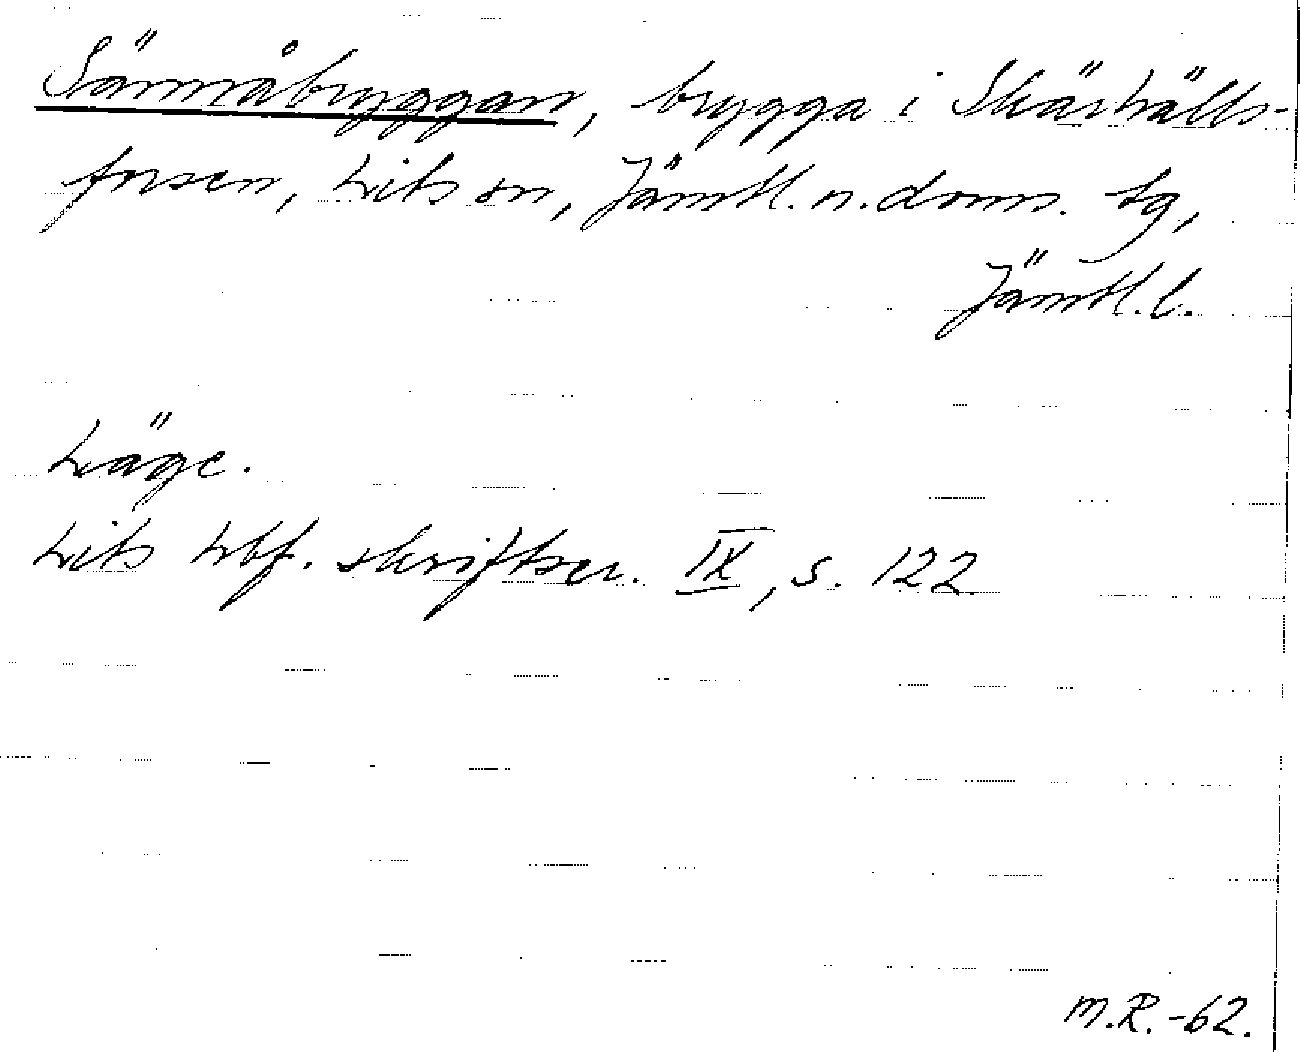 Särmåbryggan, brygga i Skärhälls-
forsen, Lits sn, Jämtl. n. doms. tg,
Jämtl. l.
Läge.
Lits hbf. skriftser. IX, s. 122
M.R. -62.